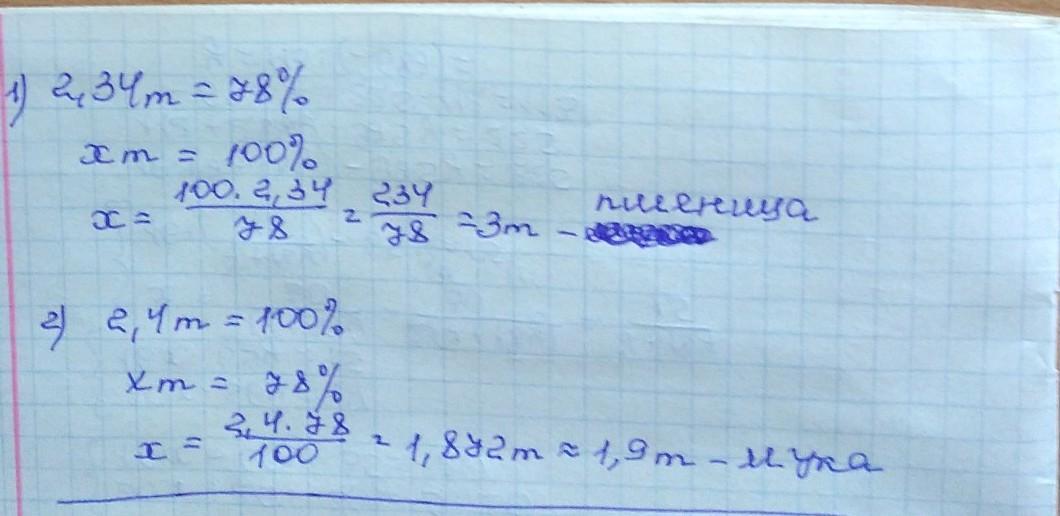 1) 2,34т = 78%
хт = 100%
х = 100 · 2,34 / 78 = 234 / 78 = 3т – пшеница
2) 2,4т = 100%
хт = 78%
х = 2,4 · 78 / 100 = 1,872т ≈ 1,9т – мука